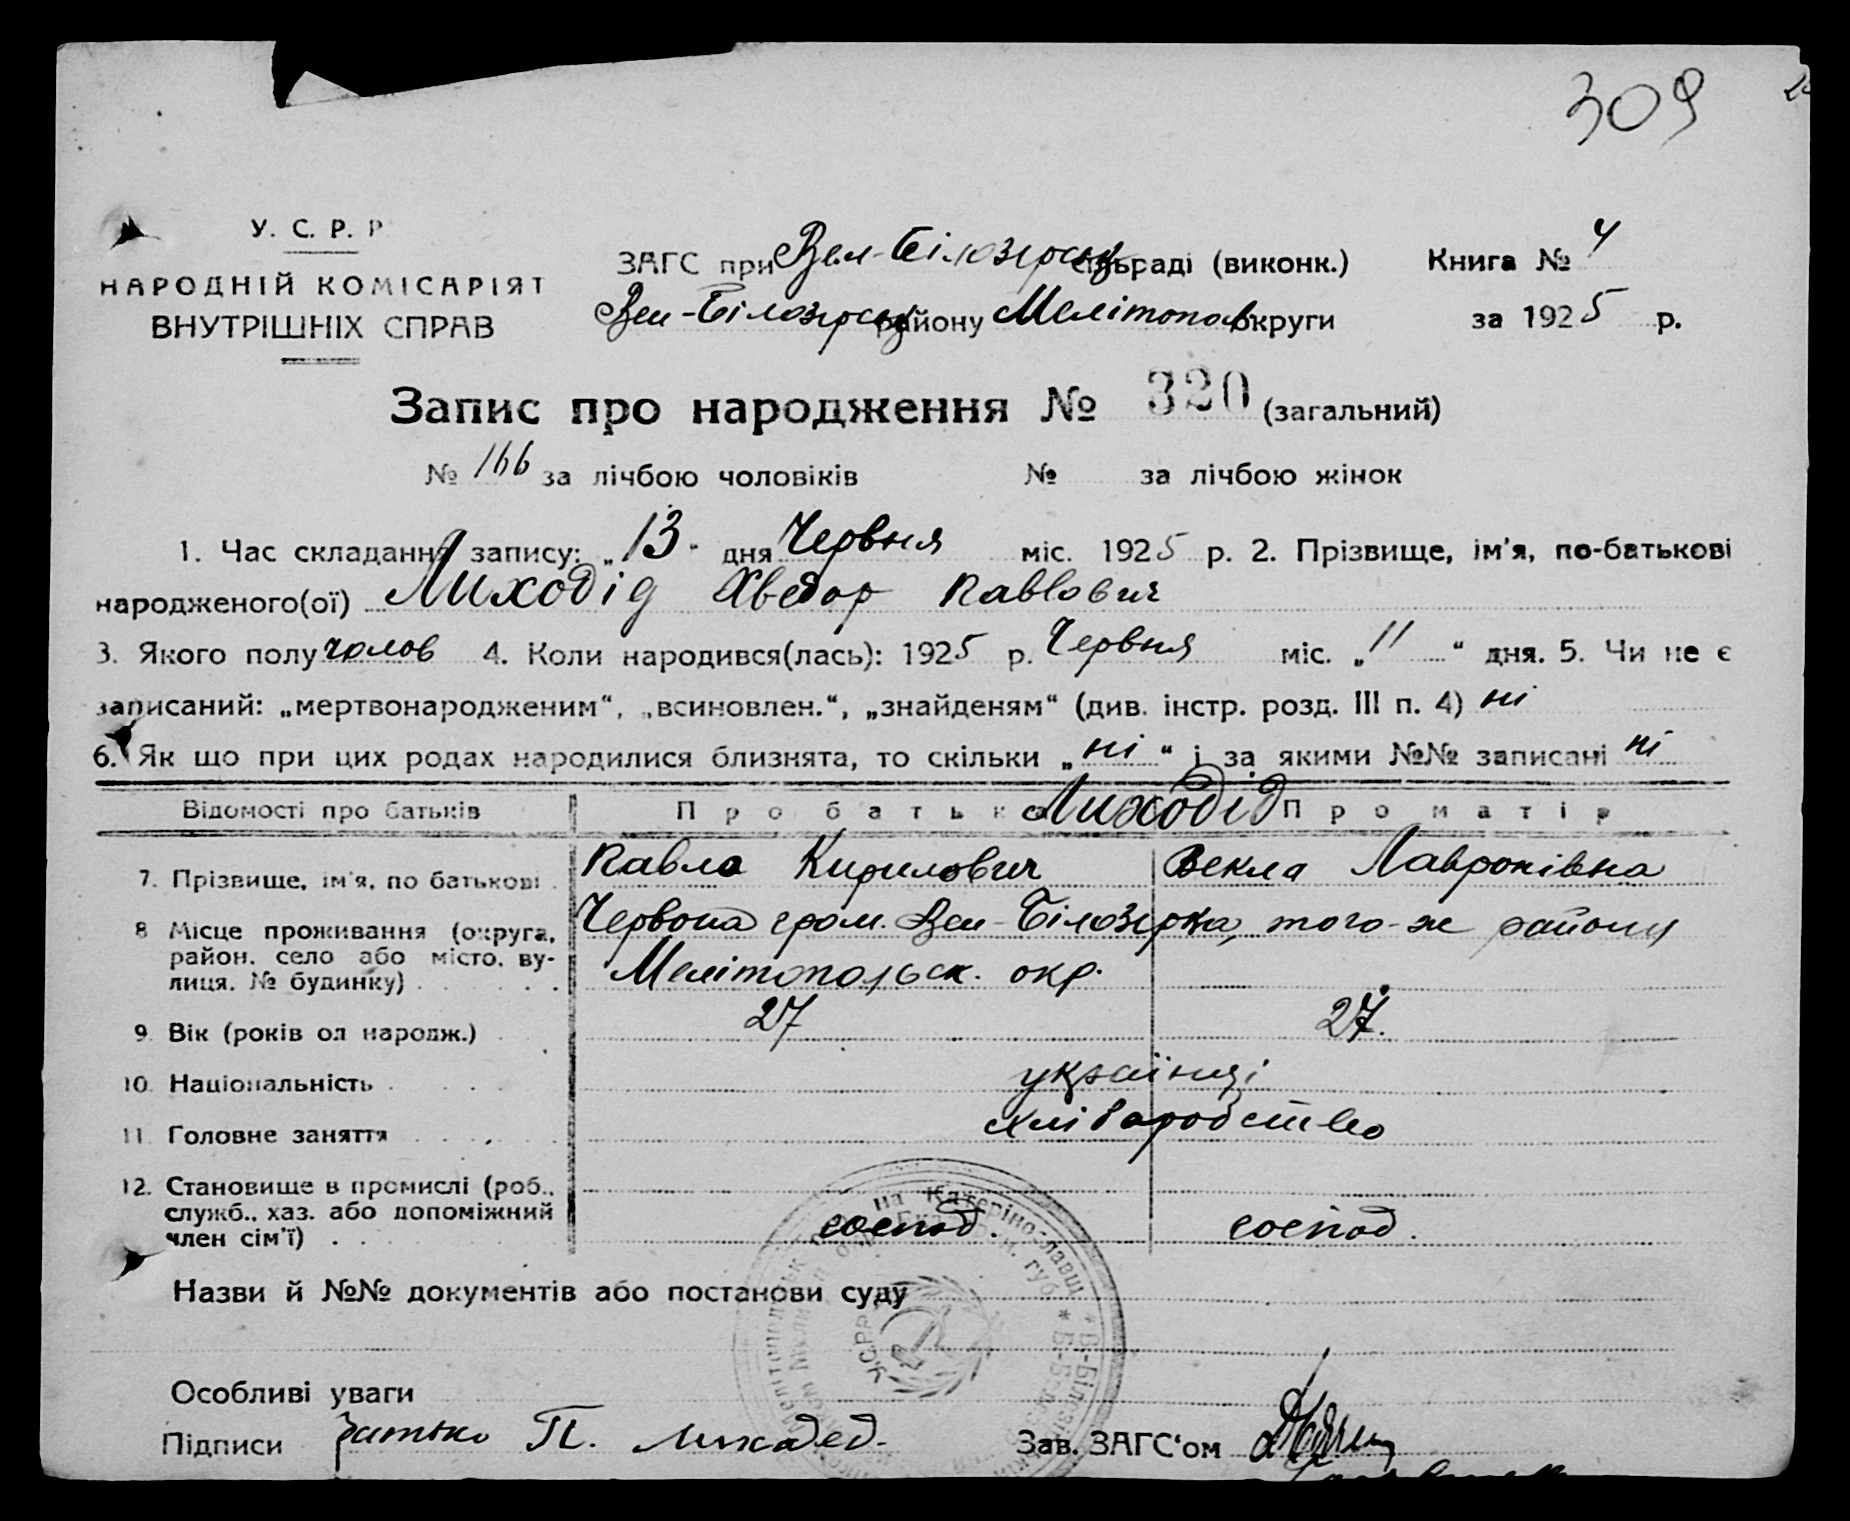 309
У. С. Р. Р
НАРОДНІЙ КОМІСАРІЯТ
ВНУТРІШНІХ СПРАВ
ЗАГС при Вел-Білозірськ сільраді (виконк.) Книга № 4
Вел-Білозірськ району Мелітопол округи за 1925 р.
Запис про народження № 320 (загальний)
№ 166 за лічбою чоловіків № за лічбою жінок
1. Час складання запису: „13" дня Червня міс. 1925 р. 2. Прізвище, ім'я, по-батькові
народженого(ої) Лиходід Хведор Павлович
3. Якого полу чолов 4. Коли народився(лась): 1925 р. Червня міс. „11" дня. 5. Чи не є
записаний: „мертвонародженим", „всиновлен.", „знайденям" (див. інстр. розд. III п. 4) ні
6. Як що при цих родах народилися близнята, то скільки „ні" і за якими №№ записані ні
Відомості про батьків Про батька Лиходід Про матір
7. Прізвище, ім'я, по батькові Павло Кирилович Векла Лавронівна
8 Місце проживання (округа, Червона гром. Вел-Білозірка, того-ж району
район. село або місто, ву- Мелітопольск. окр.
лиця. № будинку)
9 Вік (років од народж.) 27 27.
10. Національність українці
11 Головне заняття хліборобство
12. Становище в промислі (роб.,
служб., хаз. або допоміжний госпód. госпód.
член сім'ї)
Назви й №№ документів або постанови суду
Особливі уваги
Підписи батько П. Лиходед. Зав. ЗАГС'ом